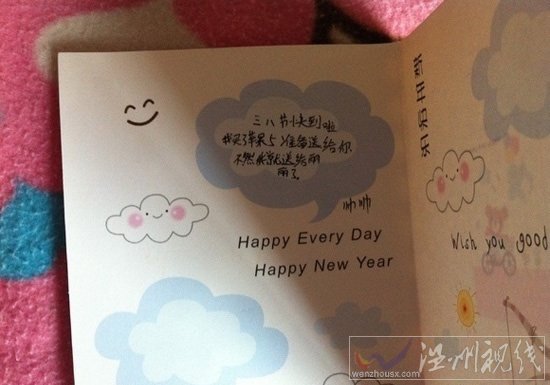 三八节快到啦
我买了苹果5准备送给你
不然我就送给丽
丽了
帅帅
Happy Every Day
Happy New Year
Wish you good
温州视线
www.wenzhousx.com